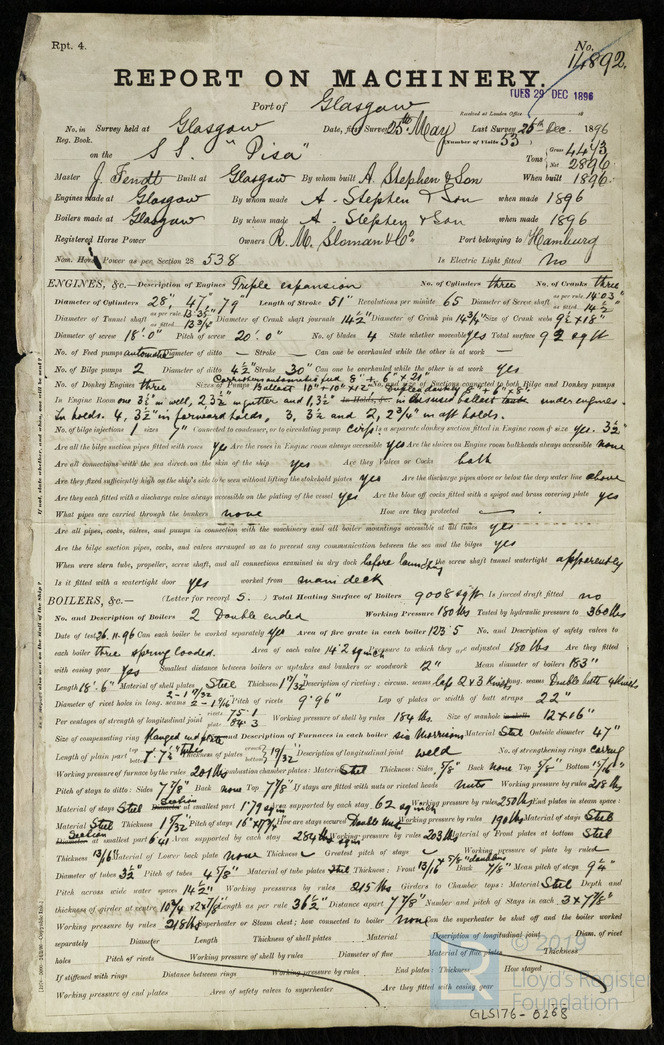 Rpt. 4.
No. 14892.
REPORT ON MACHINERY.
TUES 29 DEC 1896
Port of Glasgow
Received at London Office 18
No. in Survey held at Glasgow Date, first Survey 25th May Last Survey 25th Dec. 1896
Reg. Book. (Number of Visits 53)
on the S.S. "Pisa" Tons Gross 4443 Net 2896
Master J. Fendt Built at Glasgow By whom built A. Stephen & Son When built 1896
Engines made at Glasgow By whom made A. Stephen & Son when made 1896
Boilers made at Glasgow By whom made A. Stephen & Son when made 1896
Registered Horse Power Owners R. M. Sloman & Co. Port belonging to Hamburg
Nom. Horse Power as per Section 28 538 Is Electric Light fitted No
ENGINES, &c.—Description of Engines Triple expansion No. of Cylinders three No. of Cranks three
Diameter of Cylinders 28", 47", 79" Length of Stroke 51" Revolutions per minute 65 Diameter of Screw shaft as per rule 14.03" as fitted 14½"
Diameter of Tunnel shaft as per rule as fitted 13¾" Diameter of Crank shaft journals 14½" Diameter of Crank pin 14¾" Size of Crank webs 9½"x18"
Diameter of screw 18'.0" Pitch of screw 20'.0" No. of blades 4 State whether moveable yes Total surface 92 sq ft
No. of Feed pumps automatic Diameter of ditto — Stroke — Can one be overhauled while the other is at work —
No. of Bilge pumps 2 Diameter of ditto 4½" Stroke 30" Can one be overhauled while the other is at work yes
No. of Donkey Engines three Sizes of Pumps Ballast 10"x10"x12" No. and size of Suctions connected to both Bilge and Donkey pumps
In Engine Room one 3½" in well, 2 3½" in gutter and 1, 3½" in disused ballast tank under engines.
In holds. 4, 3½" in forward holds, 3, 3½" and 2, 2¾" in aft holds.
No. of bilge injections 1 sizes 7" Connected to condenser, or to circulating pump circ Is a separate donkey suction fitted in Engine room & size yes. 3½"
Are all the bilge suction pipes fitted with roses yes Are the roses in Engine room always accessible yes Are the sluices on Engine room bulkheads always accessible none
Are all connections with the sea direct on the skin of the ship yes Are they Valves or Cocks both
Are they fixed sufficiently high on the ship's side to be seen without lifting the stokehold plates yes Are the discharge pipes above or below the deep water line above
Are they each fitted with a discharge valve always accessible on the plating of the vessel yes Are the blow off cocks fitted with a spigot and brass covering plate yes
What pipes are carried through the bunkers none How are they protected —
Are all pipes, cocks, valves, and pumps in connection with the machinery and all boiler mountings accessible at all times yes
Are the bilge suction pipes, cocks, and valves arranged so as to prevent any communication between the sea and the bilges yes
When were stern tube, propeller, screw shaft, and all connections examined in dry dock before launching Is the screw shaft tunnel watertight apparently
Is it fitted with a watertight door yes worked from main deck
BOILERS, &c.— (Letter for record S.) Total Heating Surface of Boilers 9008 sq ft Is forced draft fitted no
No. and Description of Boilers 2 Double ended Working Pressure 180 lbs Tested by hydraulic pressure to 360 lbs
Date of test 26.11.96 Can each boiler be worked separately yes Area of fire grate in each boiler 123.5 No. and Description of safety valves to
each boiler three spring loaded. Area of each valve 14.2 sq inch Pressure to which they are adjusted 180 lbs Are they fitted
with easing gear yes Smallest distance between boilers or uptakes and bunkers or woodwork 12" Mean diameter of boilers 183"
Length 18'.6" Material of shell plates Steel Thickness 1 17/32" Description of riveting: circum. seams lap 2 & 3 rivets long. seams Double butt
Diameter of rivet holes in long. seams Pitch of rivets 9.96" Lap of plates or width of butt straps 22"
Per centages of strength of longitudinal joint rivets 75.1 plate 84.3 Working pressure of shell by rules 184 lbs Size of manhole 12x16"
Size of compensating ring flanged No. and Description of Furnaces in each boiler six Morrisons Material Steel Outside diameter 47"
Length of plain part top bottom Thickness of plates crown bottom 19/32" Description of longitudinal joint weld No. of strengthening rings
Working pressure of furnace by the rules 201 lbs Combustion chamber plates: Material Steel Thickness: Sides 5/8" Back none Top 5/8" Bottom 15/16"
Pitch of stays to ditto: Sides 7⅞" Back none Top 7⅞" If stays are fitted with nuts or riveted heads nuts Working pressure by rules
Material of stays Steel Section at smallest part 1.79 Area supported by each stay 62 sq in Working pressure by rules 250 lbs End plates in steam space:
Material Steel Thickness 1 1/32" Pitch of stays How are stays secured Double nuts Working pressure by rules 190 lbs Material of stays Steel
Section at smallest part 6.41 Area supported by each stay 284 sq in Working pressure by rules 203 lbs Material of Front plates at bottom Steel
Thickness 13/16" Material of Lower back plate none Thickness Greatest pitch of stays Working pressure of plate by rules
Diameter of tubes 3½" Pitch of tubes 4⅝" Material of tube plates Steel Thickness: Front 13/16" Back 7/8" Mean pitch of stays 9¼"
Pitch across wide water spaces 14½" Working pressures by rules 215 lbs Girders to Chamber tops: Material Steel Depth and
thickness of girder at centre Length as per rule 36½" Distance apart 7⅞" Number and pitch of Stays in each 3x7⅞"
Working pressure by rules 218 lbs Superheater or Steam chest; how connected to boiler none Can the superheater be shut off and the boiler worked
separately Diameter Length Thickness of shell plates Material Description of longitudinal joint Diam. of rivet
holes Pitch of rivets Working pressure of shell by rules Diameter of flue Material of flue plates Thickness
If stiffened with rings Distance between rings Working pressure by rules End plates: Thickness How stayed
Working pressure of end plates Area of safety valves to superheater Are they fitted with easing gear
© 2019
Lloyd's Register
Foundation
GLS176-0268